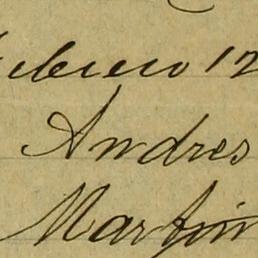 Febrero 12
Andres
Martin